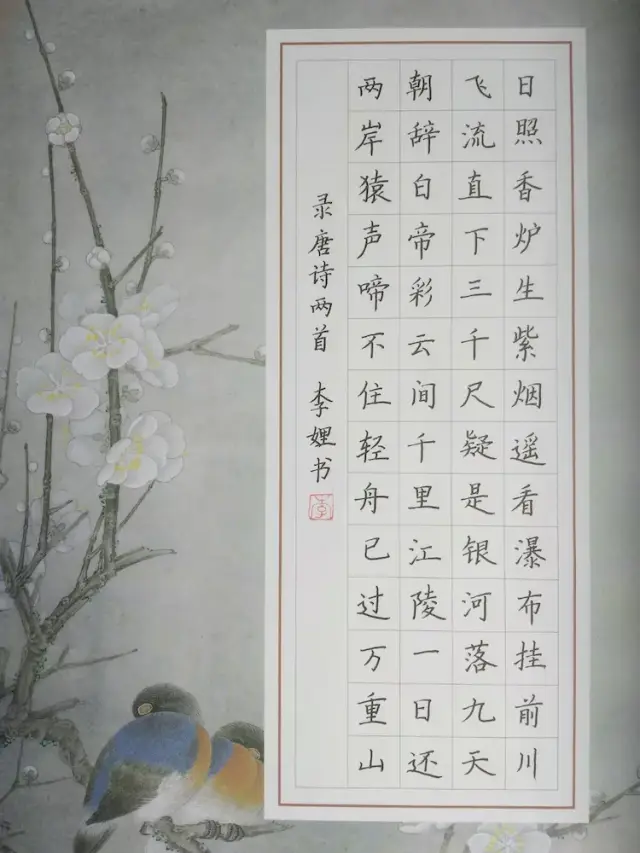 日照香炉生紫烟遥看瀑布挂前川
飞流直下三千尺疑是银河落九天
朝辞白帝彩云间千里江陵一日还
两岸猿声啼不住轻舟已过万重山
录唐诗两首 李娌书
李